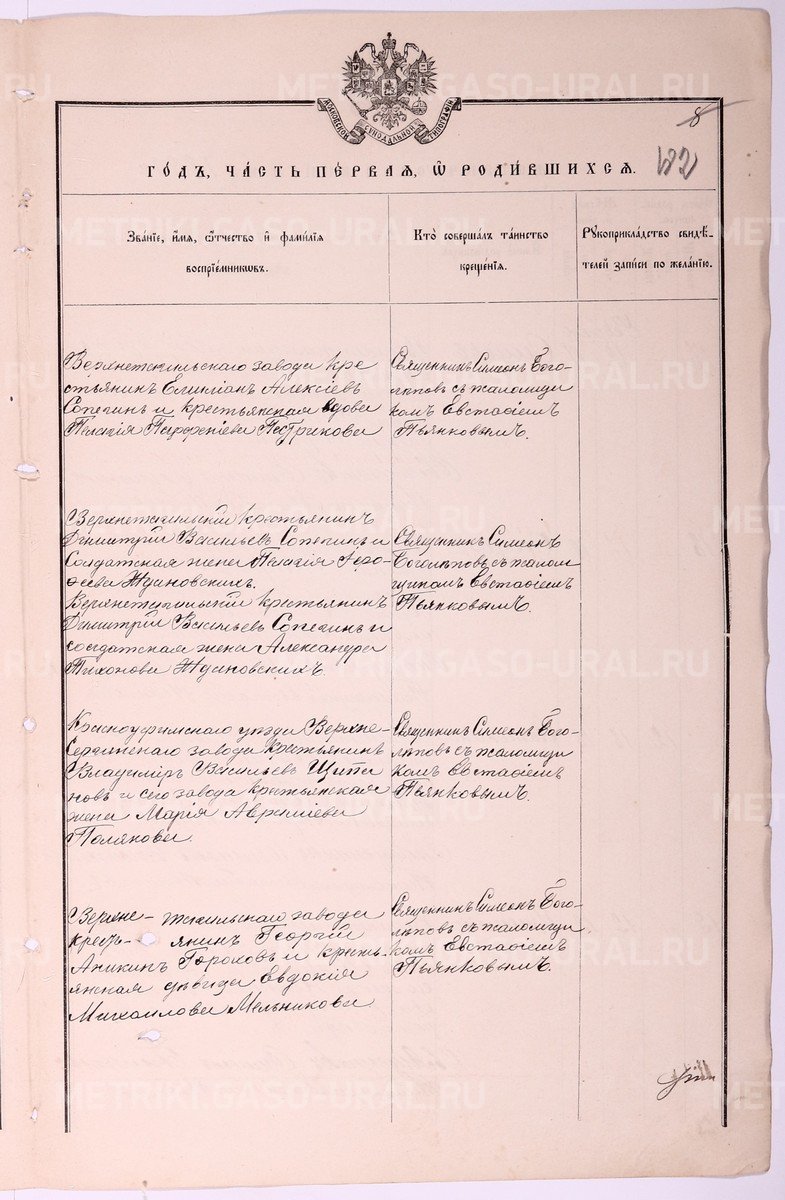 МОСКОВСКОЙ СѴНОДАЛЬНОЙ ТИПОГРАФІИ
8
ГО́ДЪ, ЧА́СТЬ ПЕ́РВАЯ, Ѡ҆ РОДИ́ВШИХСЯ.
182
Зва́нїе, и҆́мя, ѻ҆́тчество и҆ фами́лїя
воспрїе́мниковъ.
Кто̀ соверша́лъ та́инство
креще́нїя.
Рꙋкоприкла́дство свидѣ́-
телей за́писи по жела́нїю.
Верхнетагильскаго завода кре
стьянинъ Емилианъ Алексіевъ
Сопегинъ и крестьянская вдова
Пелагія Парфеніева Петрикова
Священникъ Симеонъ Бого-
лѣповъ съ псаломщи
комъ Евстафіемъ
Пьянковымъ.
Верхнетагильскій крестьянинъ
Димитрій Васильевъ Сопегинъ и
Солдатская жена Пелагія
Ждановскихъ.
Верхнетагильскій крестьянинъ
Димитрій Васильевъ Сопегинъ и
солдатская жена Александра
Тихонова Ждановскихъ.
Священникъ Симеонъ
Боголѣповъ съ псалом
щикомъ Евстафіемъ
Пьянковымъ.
Красноуфимскаго уѣзда Верхне-
Сергинскаго завода крестьянинъ
Владиміръ Васильевъ Щипа
новъ и сего завода крестьянская
жена Марія
Полякова.
Священникъ Симеонъ Бого-
лѣповъ съ псаломщи
комъ Евстафіемъ
Пьянковымъ.
Верхне- тагильскаго завода
кресть- янинъ Георгій
Аникинъ Гороховъ и кресть-
янская дѣвица Евдокія
Михаилова Мельникова
Священникъ Симеонъ Бого-
лѣповъ съ псаломщи
комъ Евстафіемъ
Пьянковымъ.
METRIKI.GASO-URAL.RU